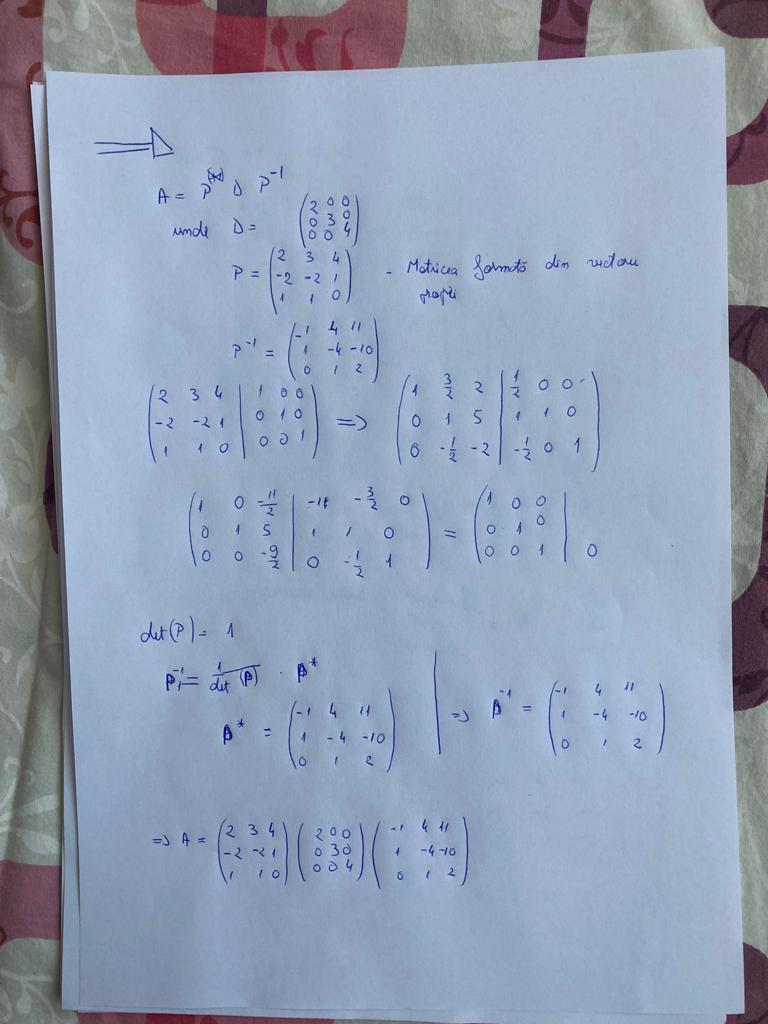 A = P D P⁻¹
unde D = (2 0 0; 0 3 0; 0 0 4)
P = (2 3 4; -2 -2 1; 1 1 0) - Matricea formată din vectori
proprii
P⁻¹ = (-1 4 11; 1 -4 -10; 0 1 2)
(2 3 4 | 1 0 0; -2 -2 1 | 0 1 0; 1 1 0 | 0 0 1) => (1 3/2 2 | 1/2 0 0; 0 1 5 | 1 1 0; 0 -1/2 -2 | -1/2 0 1)
(1 0 -11/2 | -11 -3/2 0; 0 1 5 | 1 1 0; 0 0 -9/2 | 0 -1/2 1) = (1 0 0 |; 0 1 0 |; 0 0 1 | 0)
det(P) = 1
P⁻¹ = 1/det(P) · P*
P* = (-1 4 11; 1 -4 -10; 0 1 2) | => P⁻¹ = (-1 4 11; 1 -4 -10; 0 1 2)
=> A = (2 3 4; -2 -2 1; 1 1 0) (2 0 0; 0 3 0; 0 0 4) (-1 4 11; 1 -4 -10; 0 1 2)